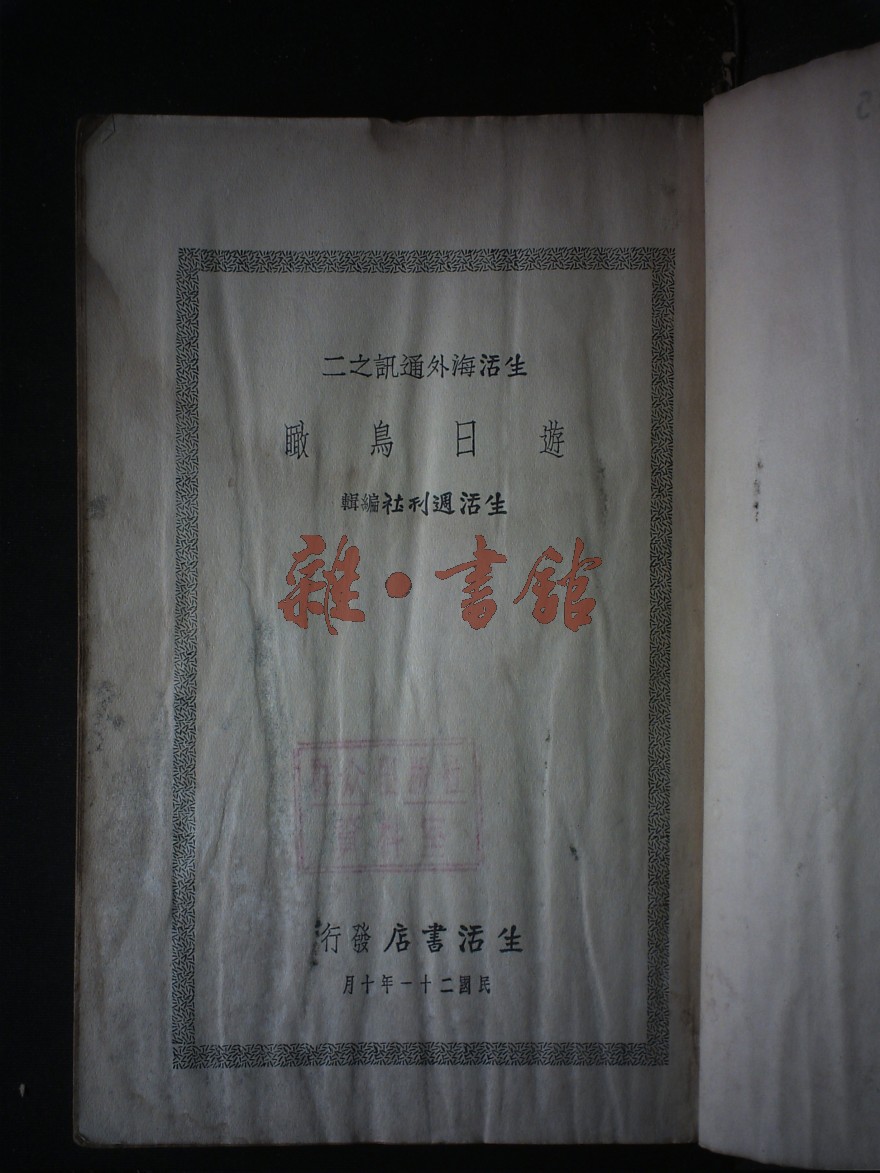 生活海外通訊之二
遊日鳥瞰
生活週刊社編輯
雜·書館
生活書店發行
民國二十一年十月